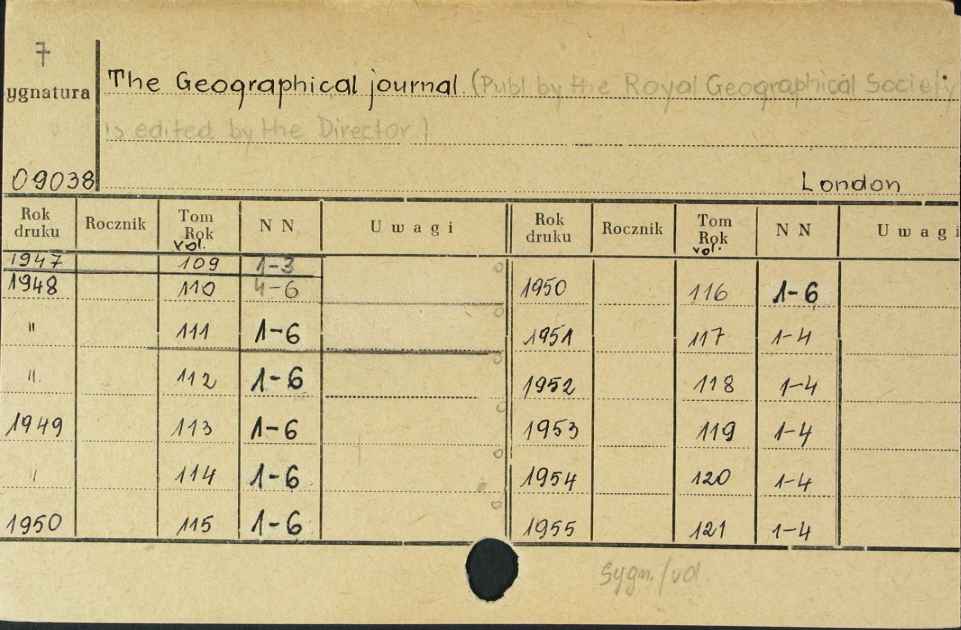 7
ygnatura
The Geographical journal (Publ by the Royal Geographical Society
is edited by the Director.)
09038
London
Rok druku Rocznik Tom Rok vol. N N Uwagi Rok druku Rocznik Tom Rok vol. N N Uwagi
1947 109 1-3
1948 110 4-6 1950 116 1-6
" 111 1-6 1951 117 1-4
" 112 1-6 1952 118 1-4
1949 113 1-6 1953 119 1-4
" 114 1-6 1954 120 1-4
1950 115 1-6 1955 121 1-4
sygn./vol